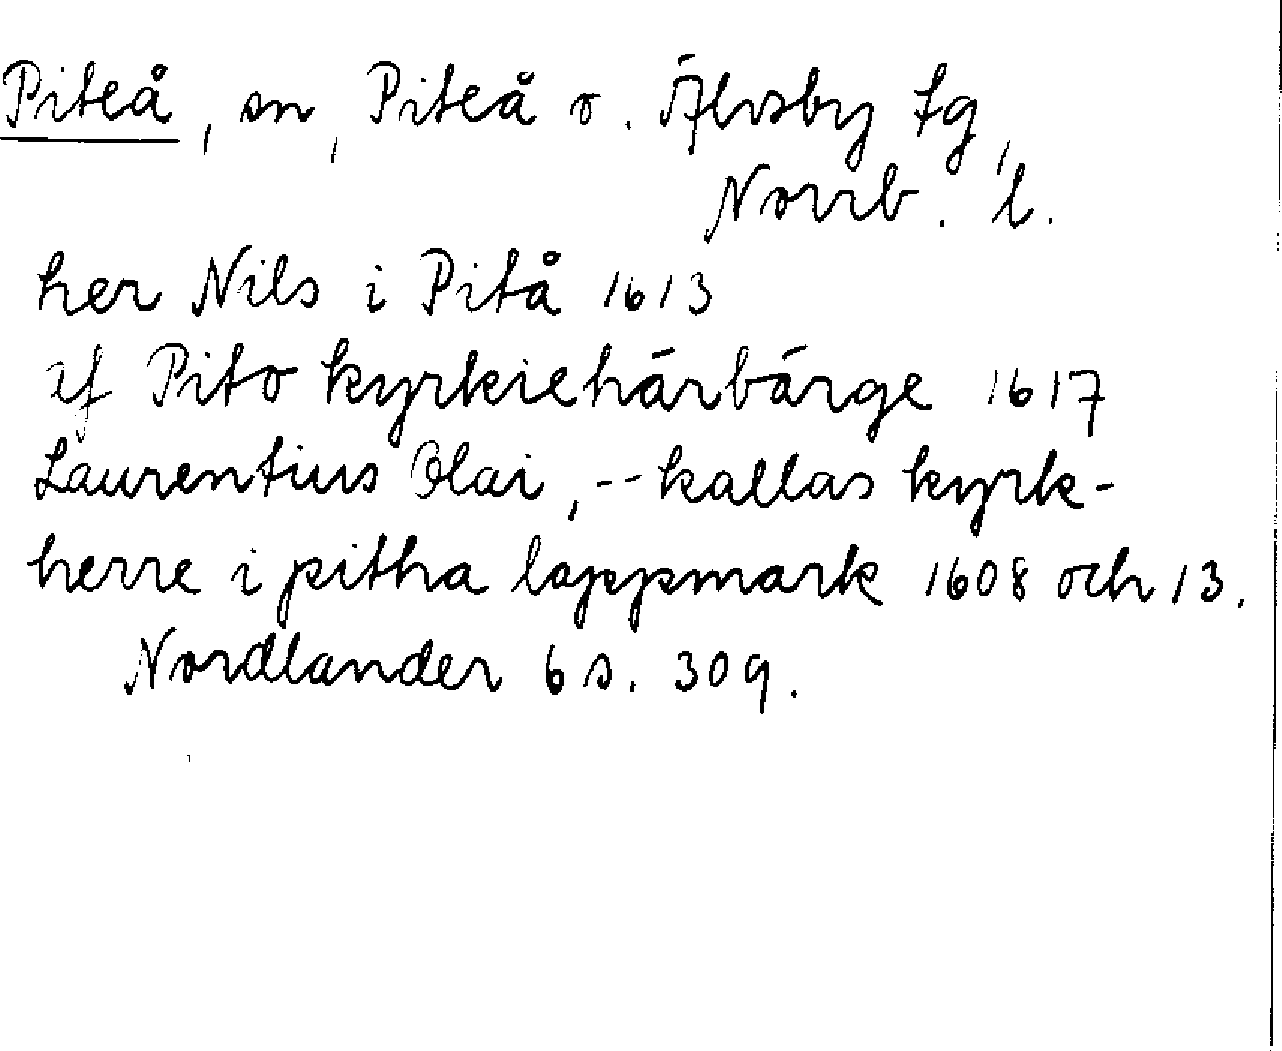 Piteå, sn, Piteå o. Älvsby tg,
Norrb. l.
her Nils i Pitå 1613
if Pito kyrkiehärbärge 1617
Laurentius Olai, -- kallas kyrk-
herre i pitha lappmark 1608 och 13.
Nordlander 6 s. 309.